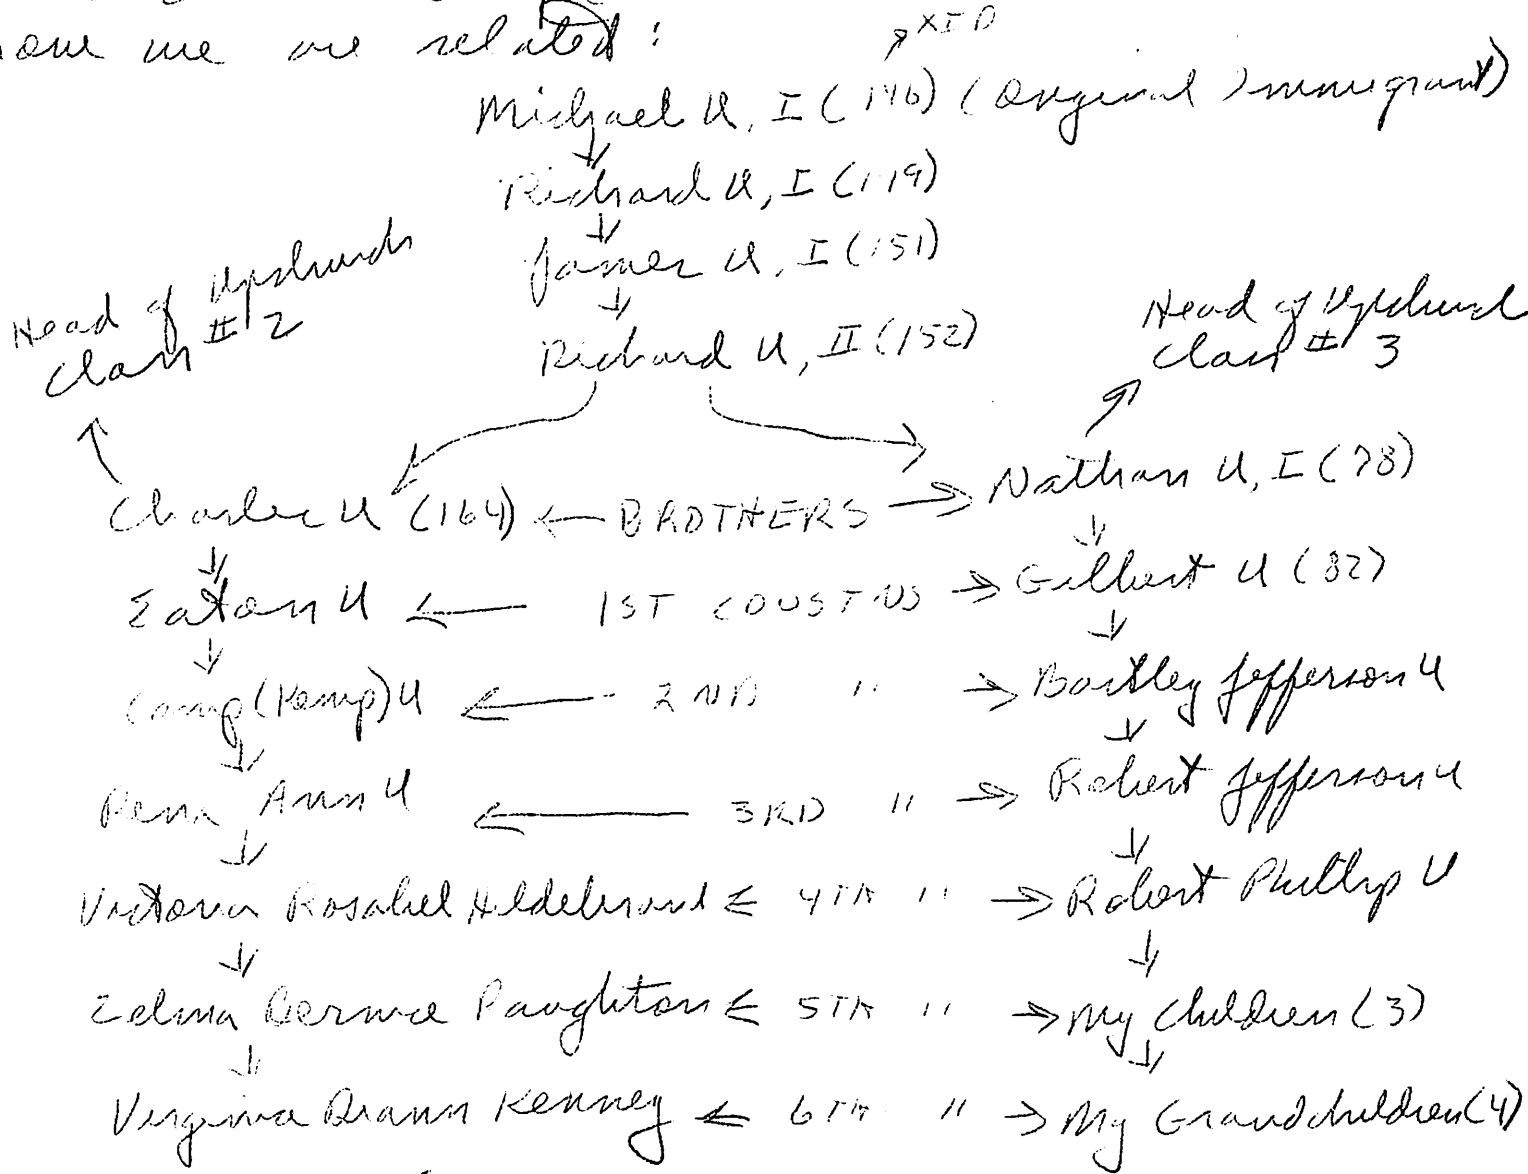 how we are related:
XID
Michael U, I (146) (Original Immigrant)
Richard U, I (119)
James U, I (151)
Head of Upchurch
Clan # 2
Richard U, II (152)
Head of Upchurch
Clan # 3
Charles U (164) ← BROTHERS → Nathan U, I (78)
Eaton U ← 1ST COUSINS → Gilbert U (82)
Camp (Kemp) U ← 2ND " → Bartley Jefferson U
Ann U ← 3RD " → Robert Jefferson U
Victoria Rosabel Hildebrand ← 4TH " → Robert Phillip U
Zelma Bernice Paughton ← 5TH " → My Children (3)
Virginia Kenney ← 6TH " → My Grandchildren (4)